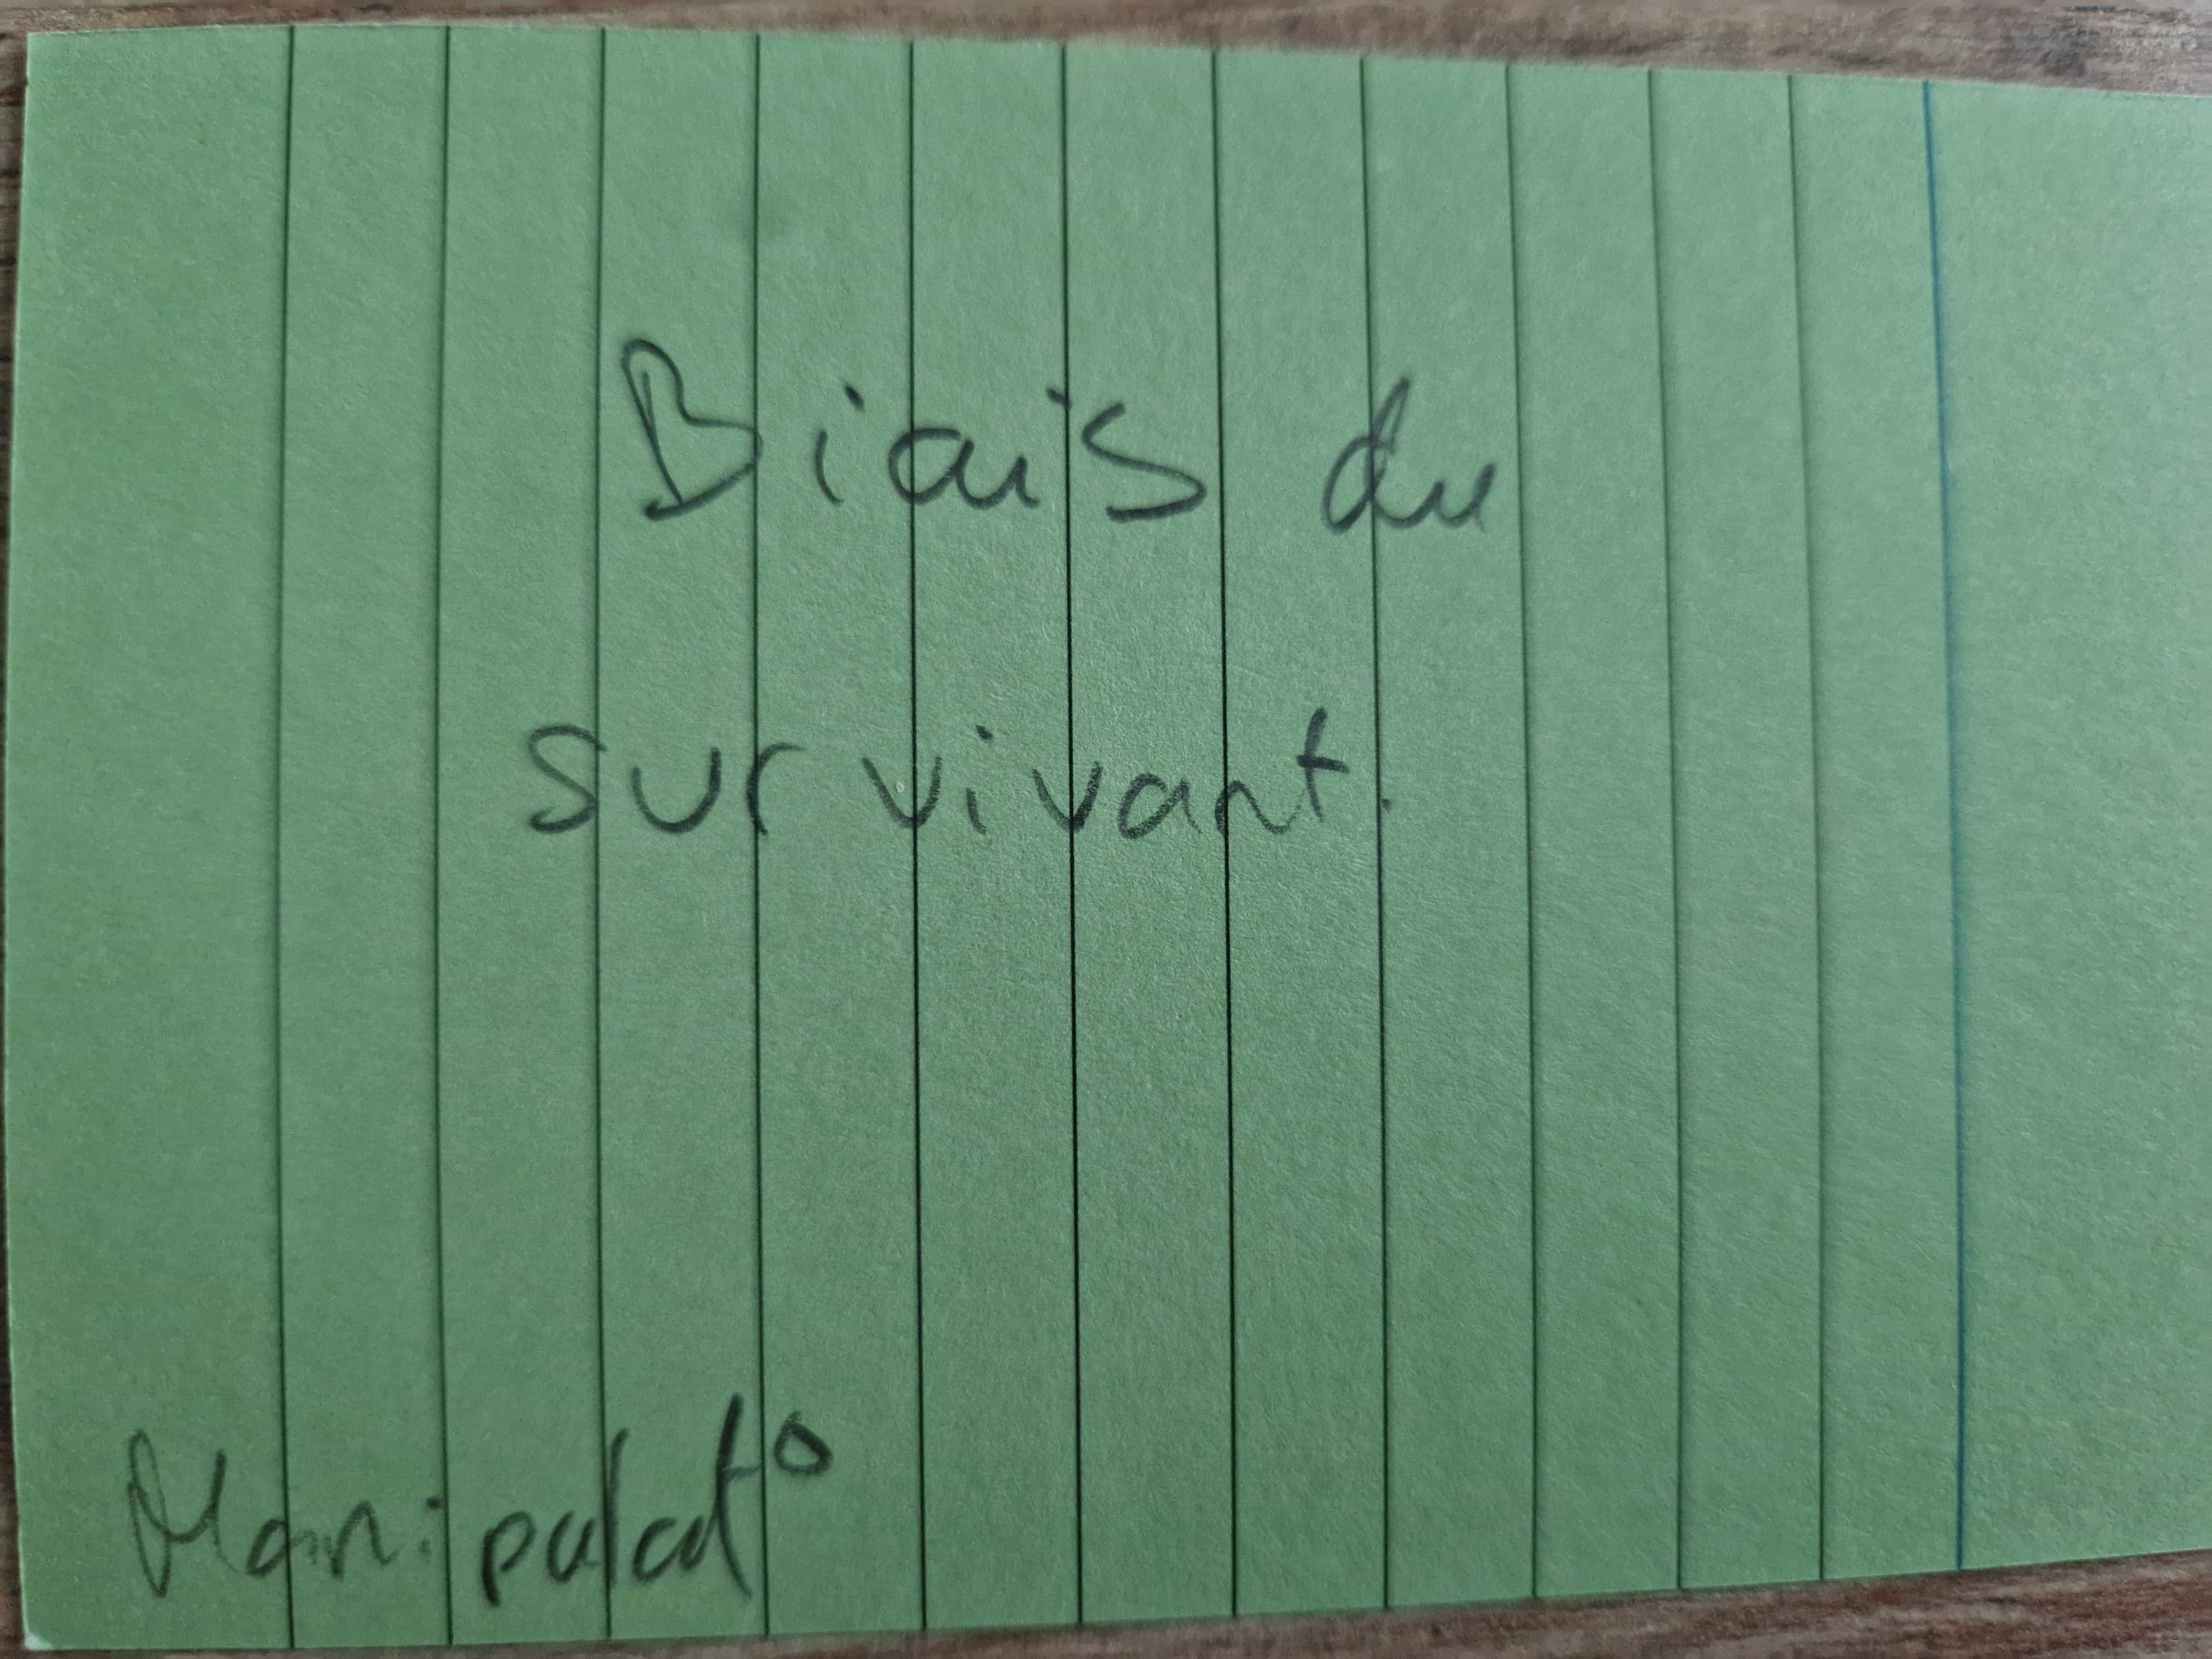 Biais du
survivant.
Manipulat°